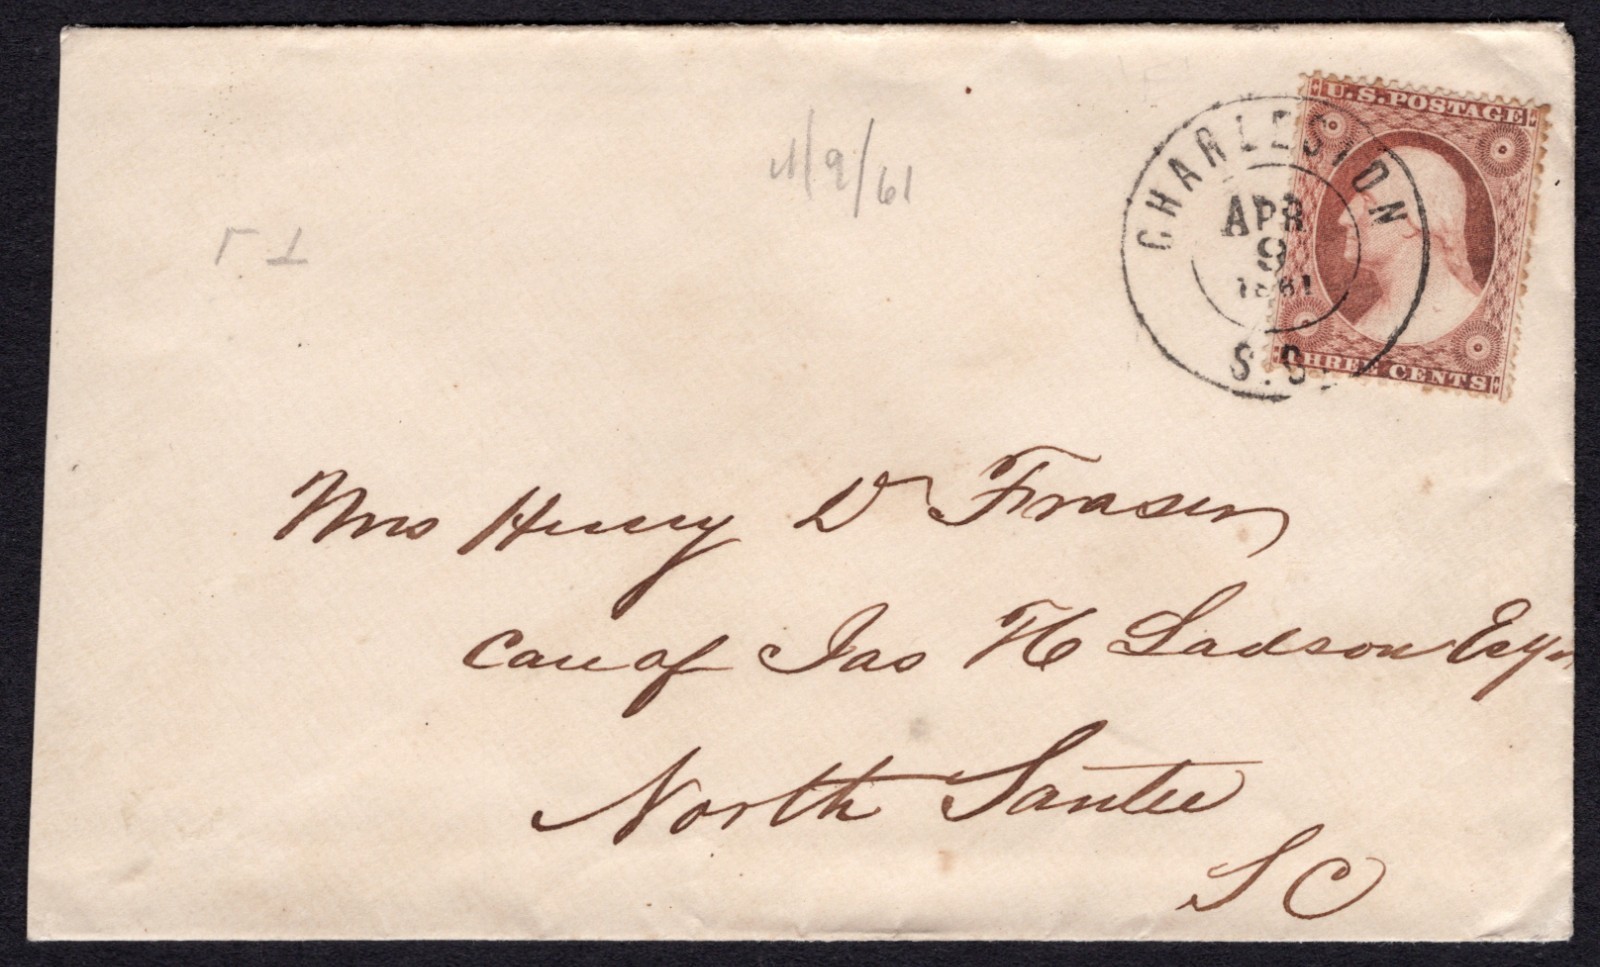 U.S. POSTAGE
THREE CENTS
CHARLESTON
APR
9
1861
S.C.
9/61
Mrs Henry D Fraser
Care of Jas H Ladson Esqr
North Santee
S C